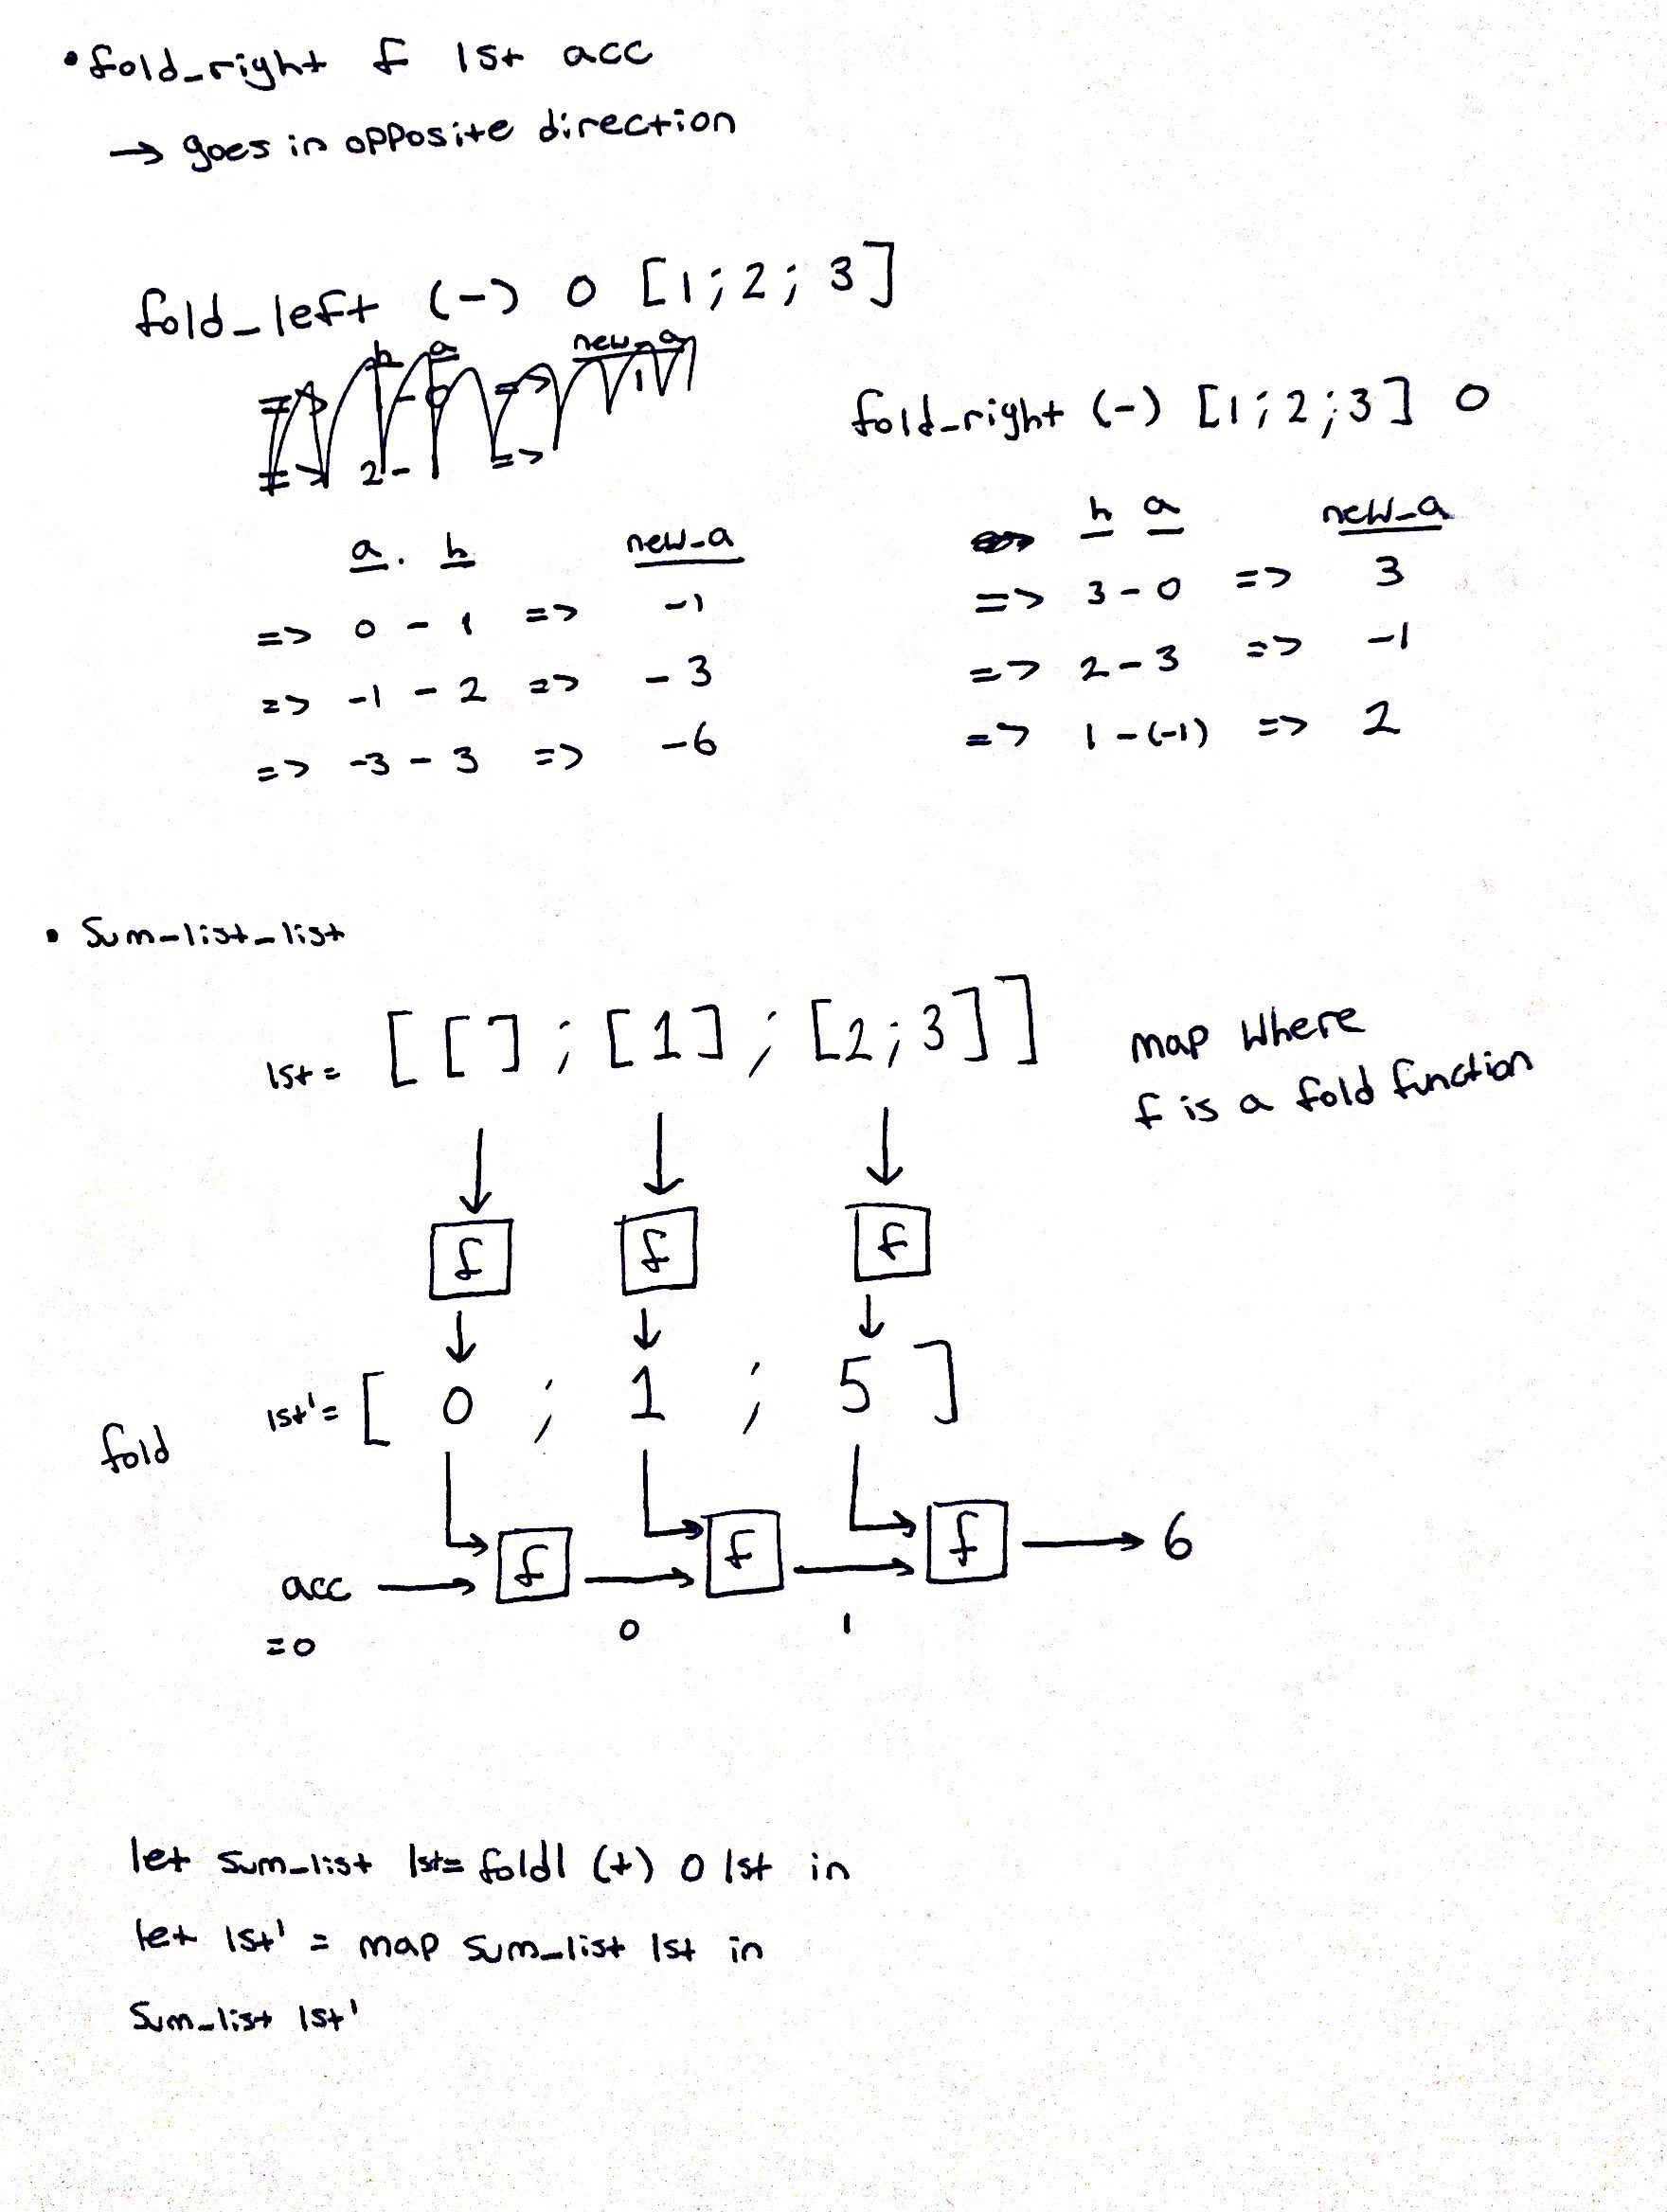 • fold_right f lst acc
→ goes in opposite direction
fold_left (-) 0 [1; 2; 3]
h a new_a
a. h new_a
=> 0 - 1 => -1
=> -1 - 2 => -3
=> -3 - 3 => -6
fold_right (-) [1; 2; 3] 0
h a new_a
=> 3 - 0 => 3
=> 2 - 3 => -1
=> 1 - (-1) => 2
• Sum_list_list
lst = [ [ ] ; [1] ; [2; 3] ]
map where
f is a fold function
f f f
fold lst' = [ 0 ; 1 ; 5 ]
acc → f → f → f → 6
= 0 0 1
let sum_list lst = foldl (+) 0 lst in
let lst' = map sum_list lst in
Sum_list lst'